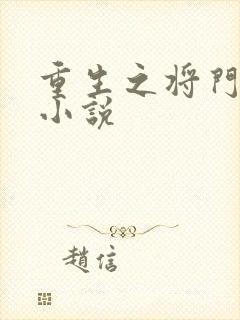 重生之将門
小說
趙信